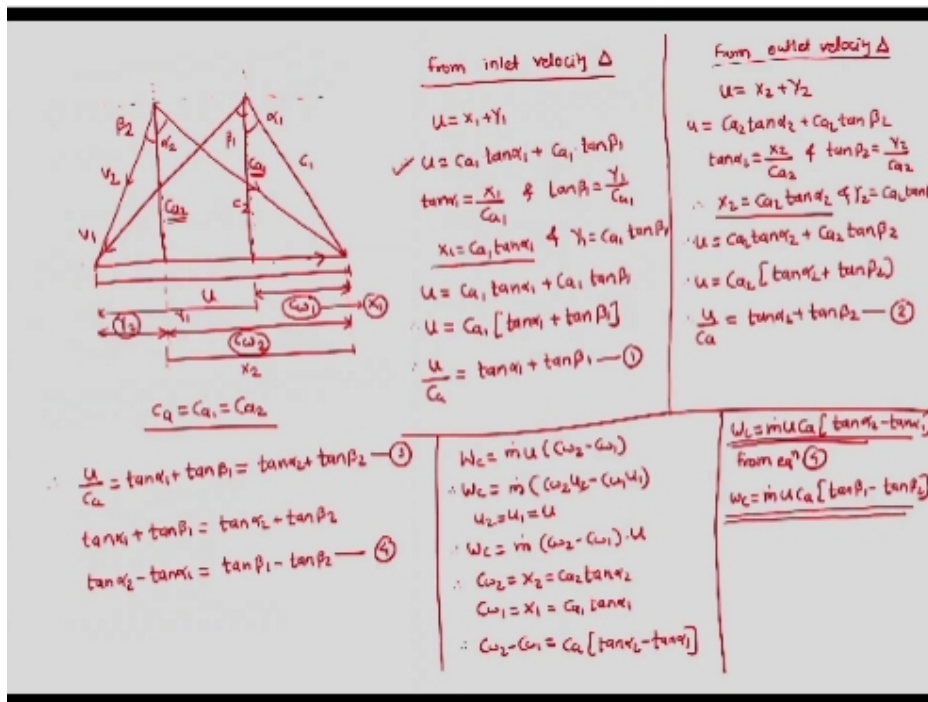 β2
α2
β1
α1
V2
Ca1
C1
Ca2
C2
V1
U
Y1
Cω1
X1
Y2
Cω2
X2
Ca = Ca1 = Ca2
∴ U/Ca = tanα1 + tanβ1 = tanα2 + tanβ2 — ③
tanα1 + tanβ1 = tanα2 + tanβ2
tanα2 - tanα1 = tanβ1 - tanβ2 — ④
From inlet velociy Δ
U = X1 + Y1
✓ U = Ca1 tanα1 + Ca1 tanβ1
tanα1 = X1/Ca1 & tanβ1 = Y1/Ca1
X1 = Ca1 tanα1 & Y1 = Ca1 tanβ1
U = Ca1 tanα1 + Ca1 tanβ1
∴ U = Ca1 [tanα1 + tanβ1]
∴ U/Ca = tanα1 + tanβ1 — ①
From outlet velociy Δ
U = X2 + Y2
U = Ca2 tanα2 + Ca2 tanβ2
tanα2 = X2/Ca2 & tanβ2 = Y2/Ca2
∴ X2 = Ca2 tanα2 & Y2 = Ca2 tan
∴ U = Ca2 tanα2 + Ca2 tanβ2
∴ U = Ca2 [tanα2 + tanβ2)
∴ U/Ca = tanα2 + tanβ2 — ②
Wc = ṁ U (Cω2 - Cω1)
∴ Wc = ṁ (Cω2 U2 - Cω1 U1)
U2 = U1 = U
∴ Wc = ṁ (Cω2 - Cω1) · U
∴ Cω2 = X2 = Ca2 tanα2
Cω1 = X1 = Ca1 tanα1
∴ Cω2 - Cω1 = Ca [tanα2 - tanα1]
Wc = ṁ U Ca [tanα2 - tanα1]
From eqⁿ ④
Wc = ṁ U Ca [tanβ1 - tanβ2]